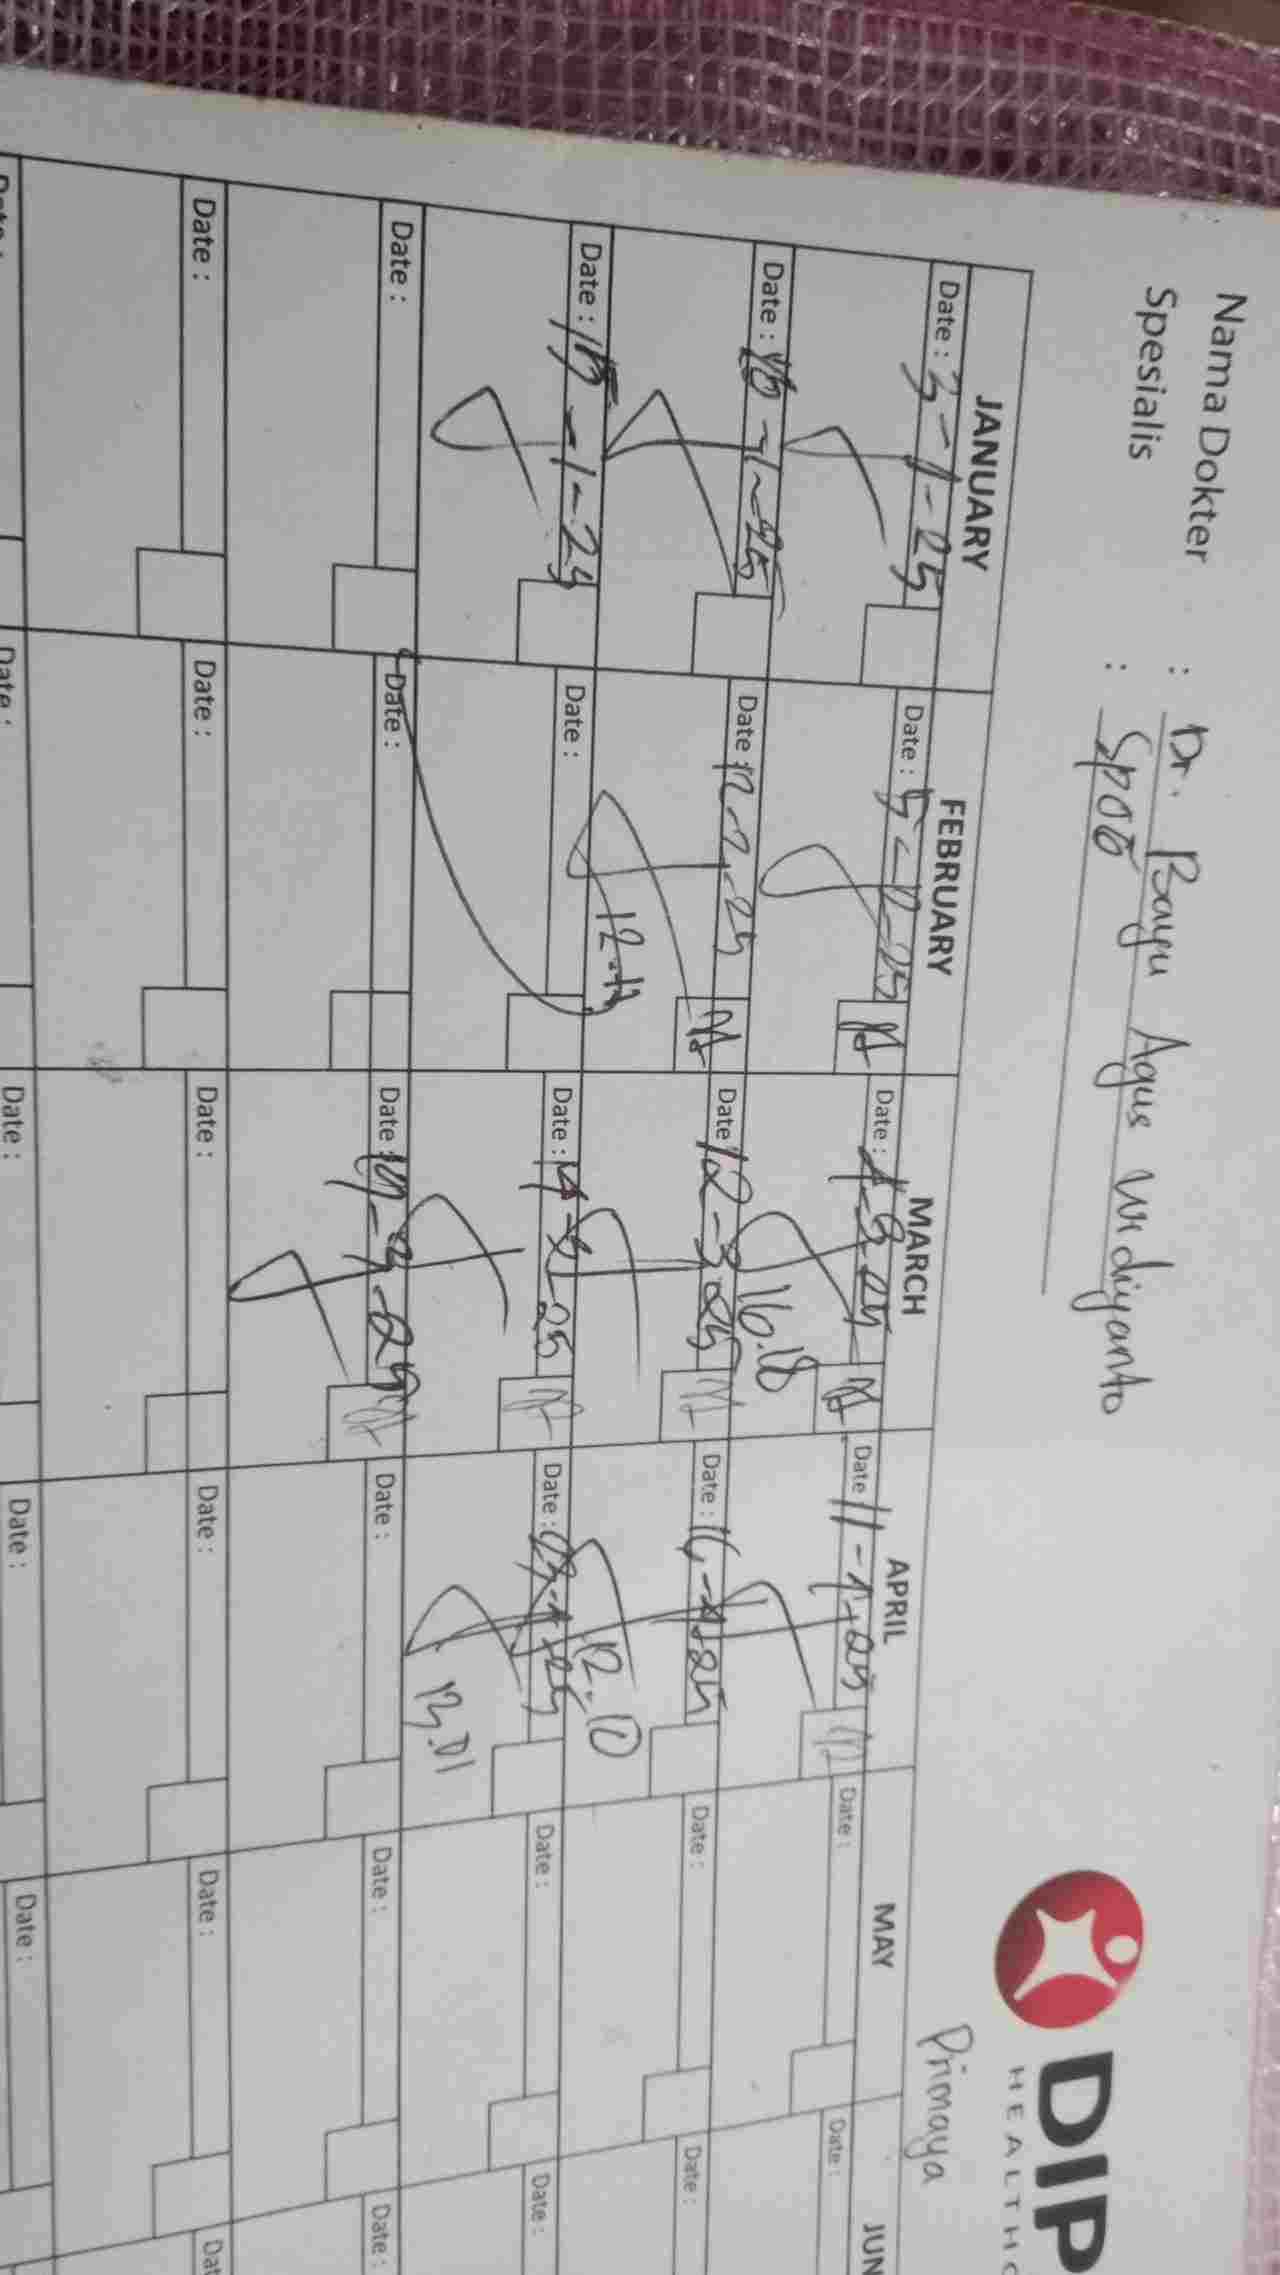 Nama Dokter : Dr. Bayu Agus Widiyanto
Spesialis : SpOG
DIP
HEALTHC
Primaya
JANUARY FEBRUARY MARCH APRIL MAY JUN
Date : 3-1-25 Date : 5-2-25 Date : 4-3-25 Date 11-4-25 Date : Date :
16.18
Date : 10-1-25 Date 12-2-25 Date 12-3-25 Date : 16-4-25 Date : Date :
12-11 12.10
Date : 15-1-25 Date : Date : 14-3-25 Date : 23-4-25 Date : Date :
13.01
Date : Date : Date : 19-3-25 Date : Date : Date :
Date : Date : Date : Date : Date : Dat
Date : Date : Date : Date : Date :